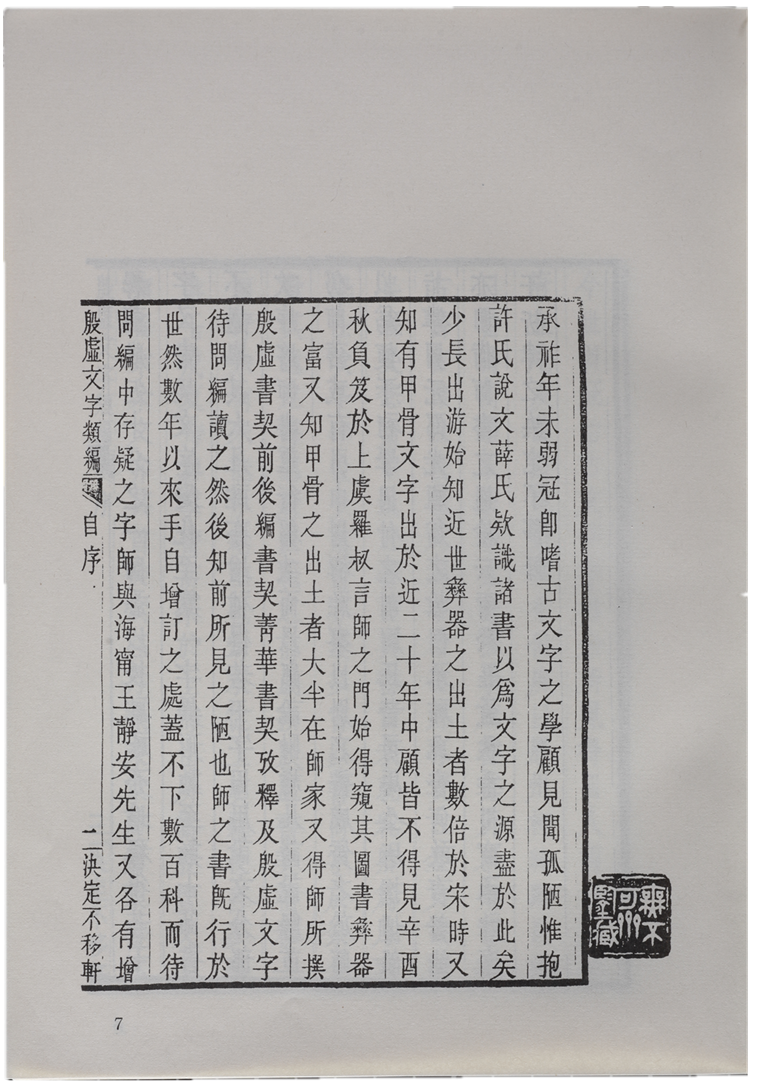 承祚年未弱冠卽嗜古文字之學顧見聞孤陋惟抱
許氏說文薛氏欵識諸書以爲文字之源盡於此矣
少長出游始知近世彝器之出土者數倍於宋時又
知有甲骨文字出於近二十年中顧皆不得見辛酉
秋負笈於上虞羅叔言師之門始得窺其圖書彝器
之富又知甲骨之出土者大半在師家又得師所撰
殷虛書契前後編書契菁華書契攷釋及殷虛文字
待問編讀之然後知前所見之陋也師之書旣行於
世然數年以來手自增訂之處蓋不下數百科而待
問編中存疑之字師與海甯王靜安先生又各有增
殷虛文字類編 自序 二 決定不移軒
7